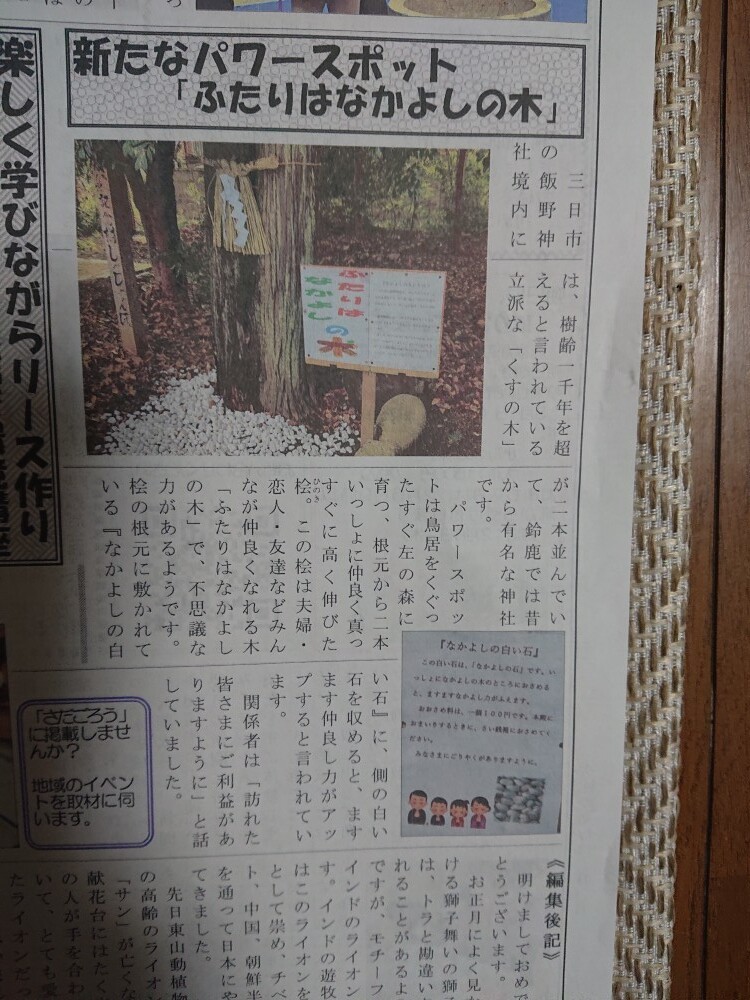 新たなパワースポット
「ふたりはなかよしの木」
三日市
の飯野神
社境内に
は、樹齢一千年を超
えると言われている
立派な「くすの木」
が二本並んでい
て、鈴鹿では昔
から有名な神社
です。
パワースポッ
トは鳥居をくぐっ
たすぐ左の森に
育つ、根元から二本
いっしょに仲良く真っ
すぐに高く伸びた
桧。この桧は夫婦・
ひのき
恋人・友達などみん
なが仲良くなれる木
「ふたりはなかよし
の木」で、不思議な
力があるようです。
桧の根元に敷かれて
いる『なかよしの白
い石』に、側の白い
石を収めると、ます
ます仲良し力がアッ
プすると言われてい
ます。
関係者は「訪れた
皆さまにご利益があ
りますように」と話
していました。
ふたりは
なかよし
の木
『なかよしの白い石』
この白い石は、「なかよしの石」です。い
っしょになかよしの木のところにおさめる
と、ますますなかよし力がふえます。
おおさめ料は、一個１００円です。本殿に
おまいりするときに、さい銭箱におさめてく
ださい。
みなさまにごりやくがありますように。
「さたごろう」
に掲載しませ
んか？
地域のイベン
トを取材に伺
います。
楽しく学びながらリース作り
《編集後記》
明けましておめで
とうございます。
お正月によく見か
ける獅子舞いの獅
は、トラと勘違い
れることがあるよ
ですが、モチーフ
インドのライオン
す。インドの遊牧
はこのライオンを
として崇め、チベ
ト、中国、朝鮮半
を通って日本にや
てきました。
先日東山動植物
の高齢のライオン
「サン」が亡くな
献花台にはたく
の人が手を合わ
いて、とても愛
たライオンだっ